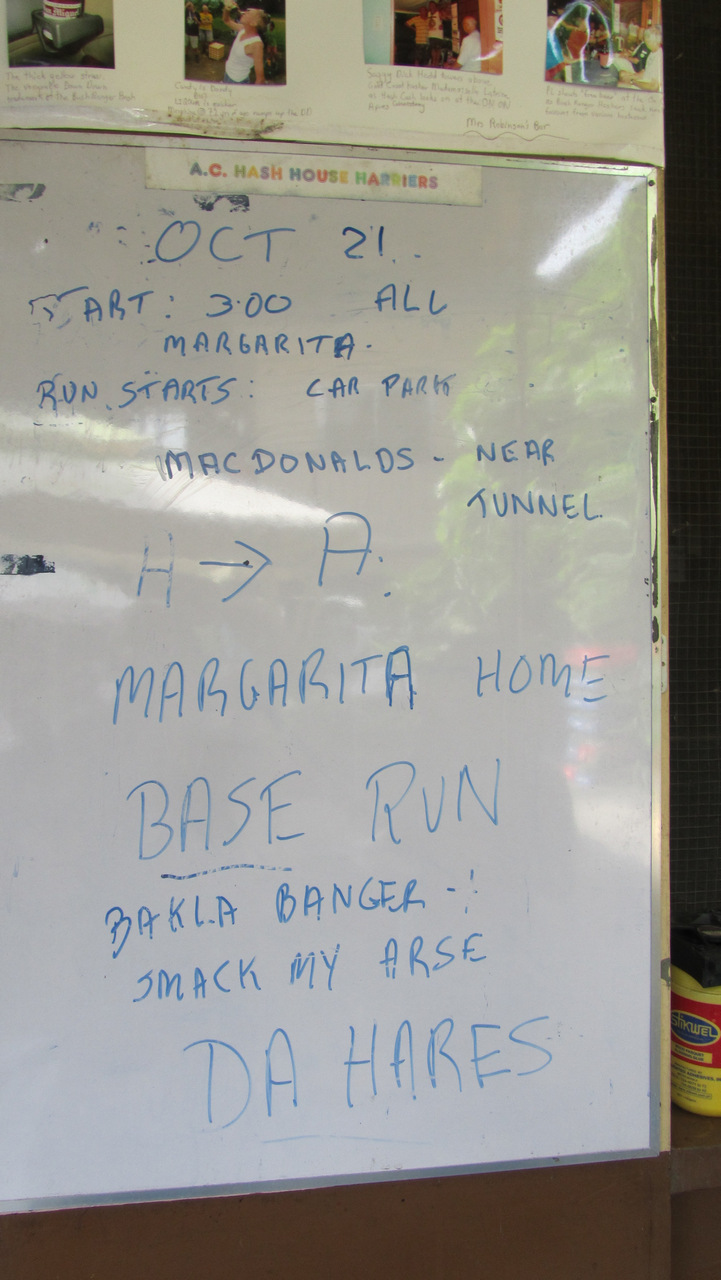 Mrs Robinson's Bar
A.C. HASH HOUSE HARRIERS
OCT 21.
START: 3.00 ALL
MARGARITA.
RUN STARTS: CAR PARK
MACDONALDS - NEAR
TUNNEL.
H → A:
MARGARITA HOME
BASE RUN
BAKLA BANGER -
SMACK MY ARSE
DA HARES
STIKWEL